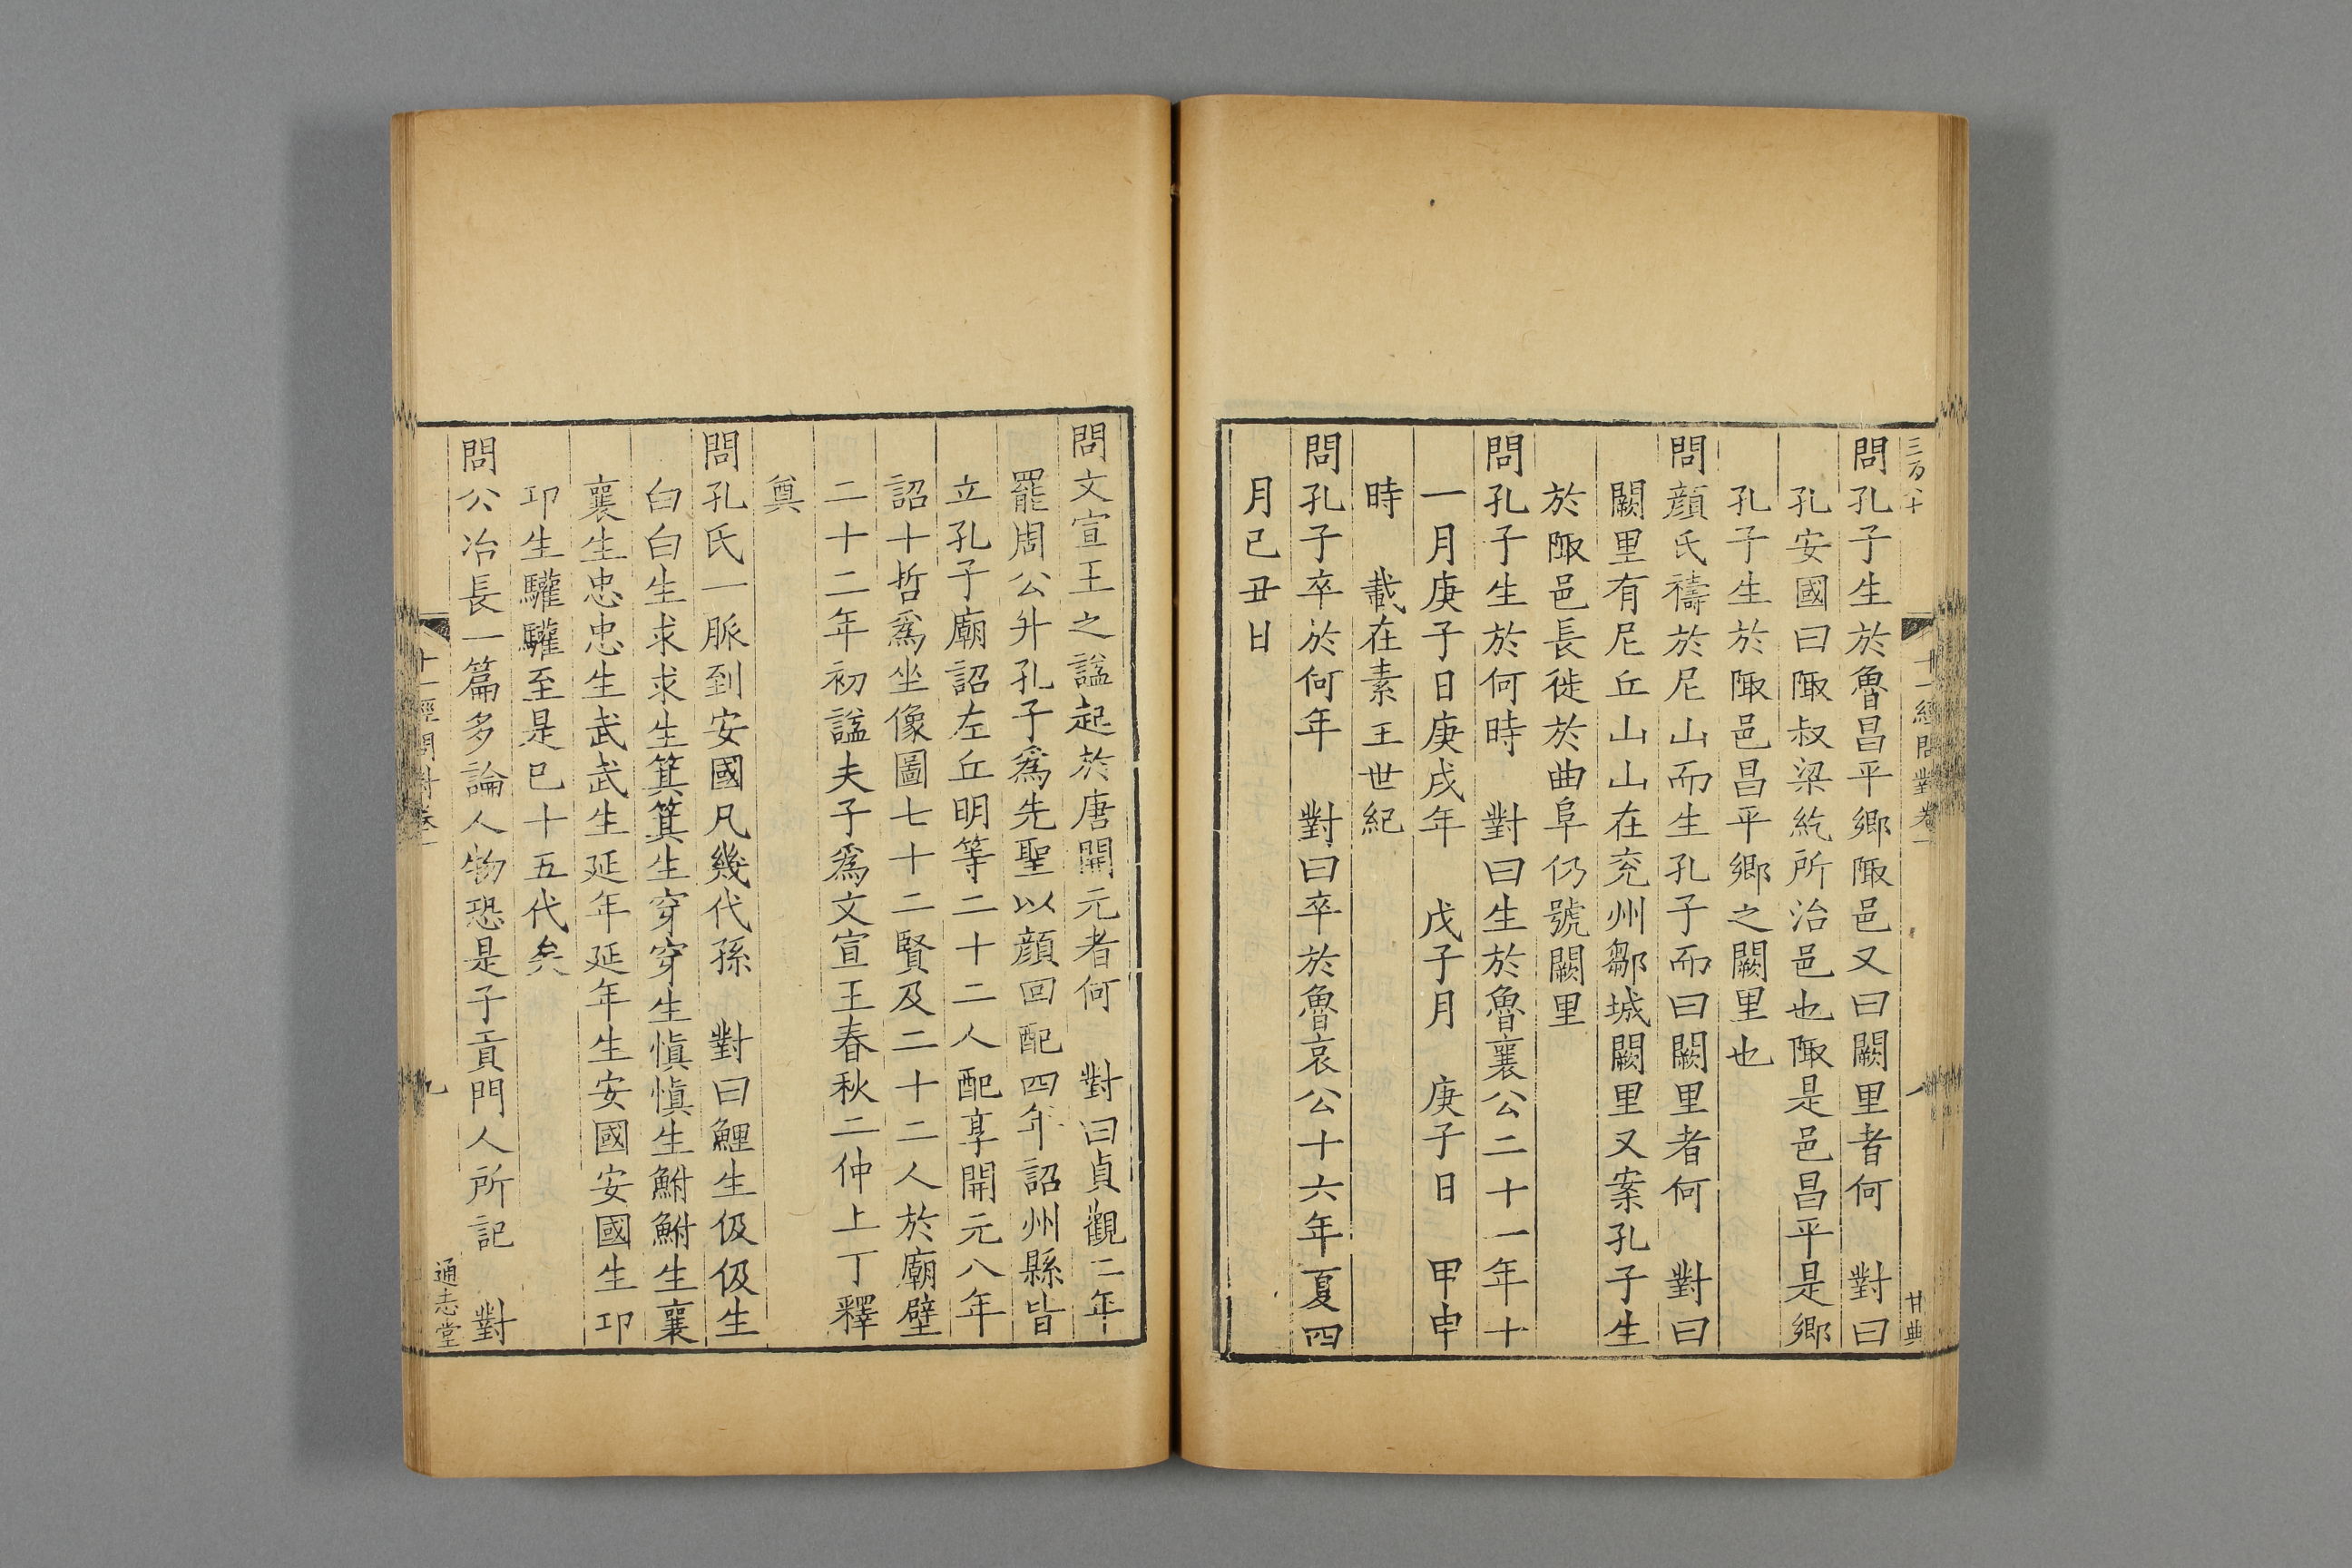 三百八十
十一經問對卷一
八
甘典
問孔子生於魯昌平鄉陬邑又曰闕里者何 對曰
孔安國曰陬叔梁紇所治邑也陬是邑昌平是鄉
孔子生於陬邑昌平鄉之闕里也
問顏氏禱於尼山而生孔子而曰闕里者何 對曰
闕里有尼丘山山在兖州鄒城闕里又案孔子生
於陬邑長徙於曲阜仍號闕里
問孔子生於何時 對曰生於魯襄公二十一年十
一月庚子日庚戌年 戊子月 庚子日 甲申
時 載在素王世紀
問孔子卒於何年 對曰卒於魯哀公十六年夏四
月己丑日
問文宣王之諡起於唐開元者何 對曰貞觀二年
罷周公升孔子爲先聖以顏回配四年詔州縣皆
立孔子廟詔左丘明等二十二人配享開元八年
詔十哲爲坐像圖七十二賢及二十二人於廟壁
二十二年初諡夫子爲文宣王春秋二仲上丁釋
奠
問孔氏一脈到安國凡幾代孫 對曰鯉生伋伋生
白白生求求生箕箕生穿穿生愼愼生鮒鮒生襄
襄生忠忠生武武生延年延年生安國安國生卭
卭生驩驩至是已十五代矣
問公冶長一篇多論人物恐是子貢門人所記 對
十一經問對卷一
九
通志堂